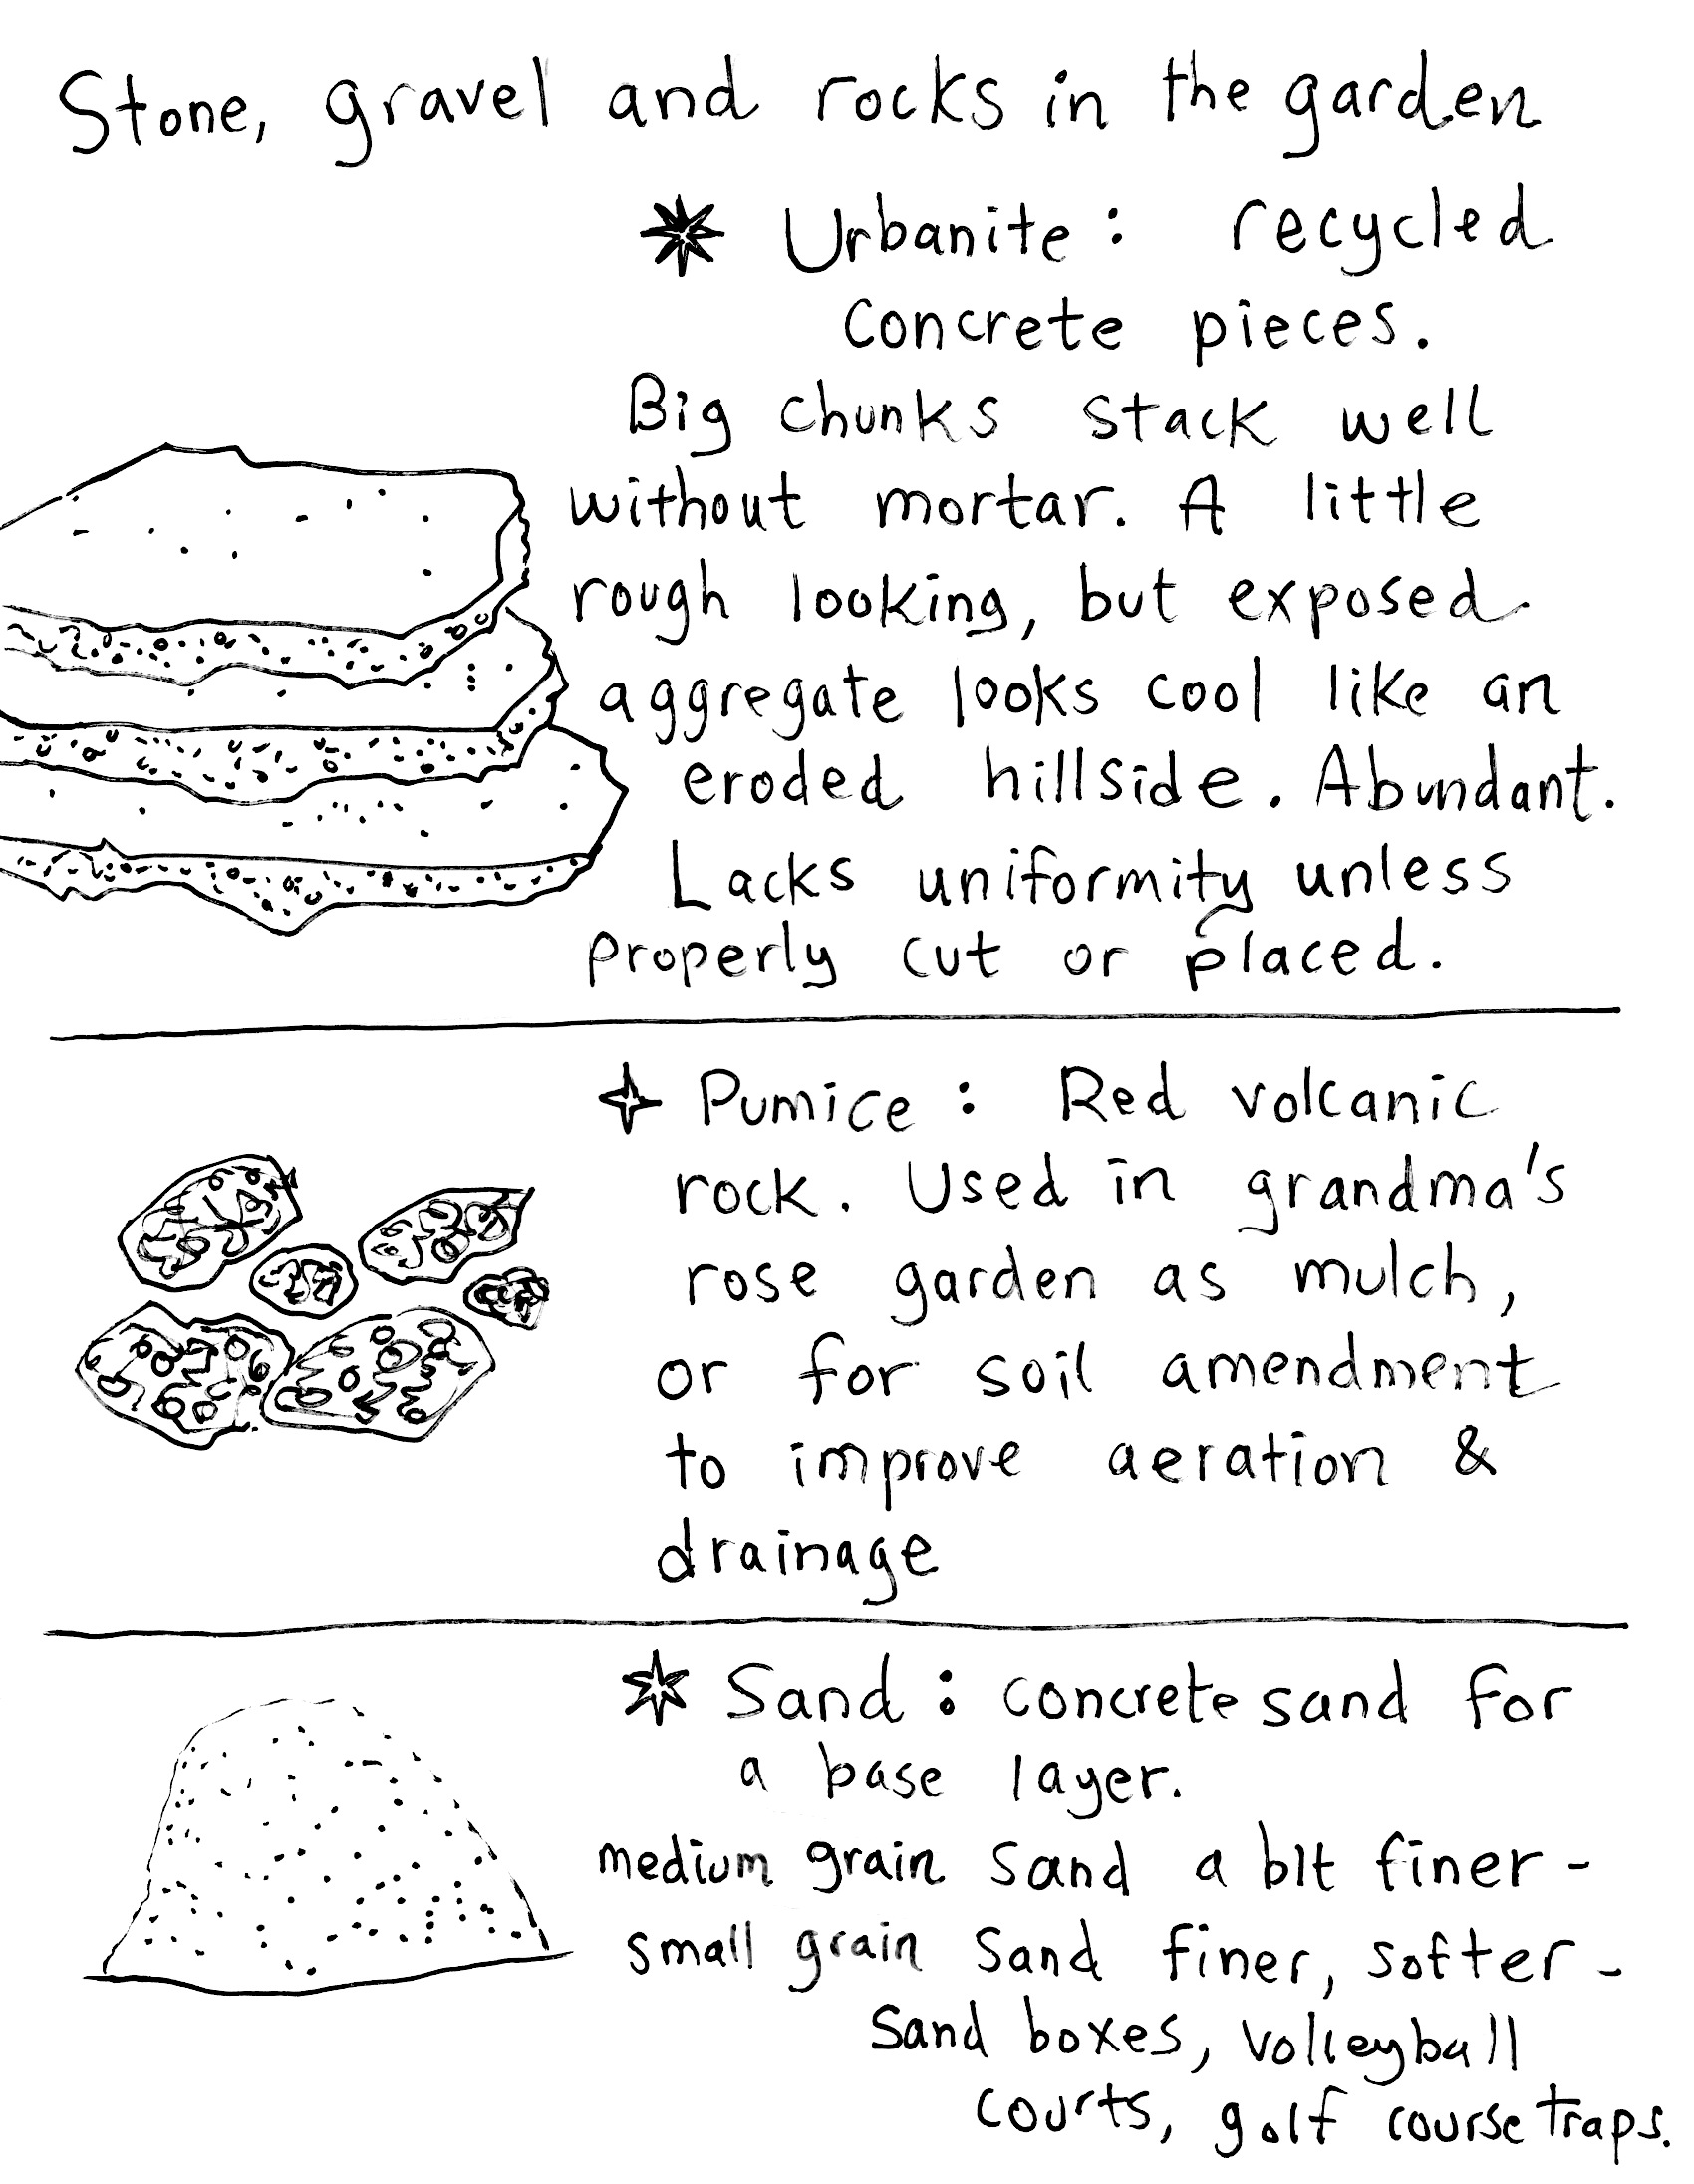 Stone, gravel and rocks in the garden
Urbanite: recycled
concrete pieces.
Big chunks stack well
without mortar. A little
rough looking, but exposed
aggregate looks cool like an
eroded hillside. Abundant.
Lacks uniformity unless
properly cut or placed.
Pumice: Red volcanic
rock. Used in grandma's
rose garden as mulch,
or for soil amendment
to improve aeration &
drainage
Sand: concrete sand for
a base layer.
medium grain sand a bit finer -
small grain sand finer, softer -
Sand boxes, volleyball
courts, golf course traps.